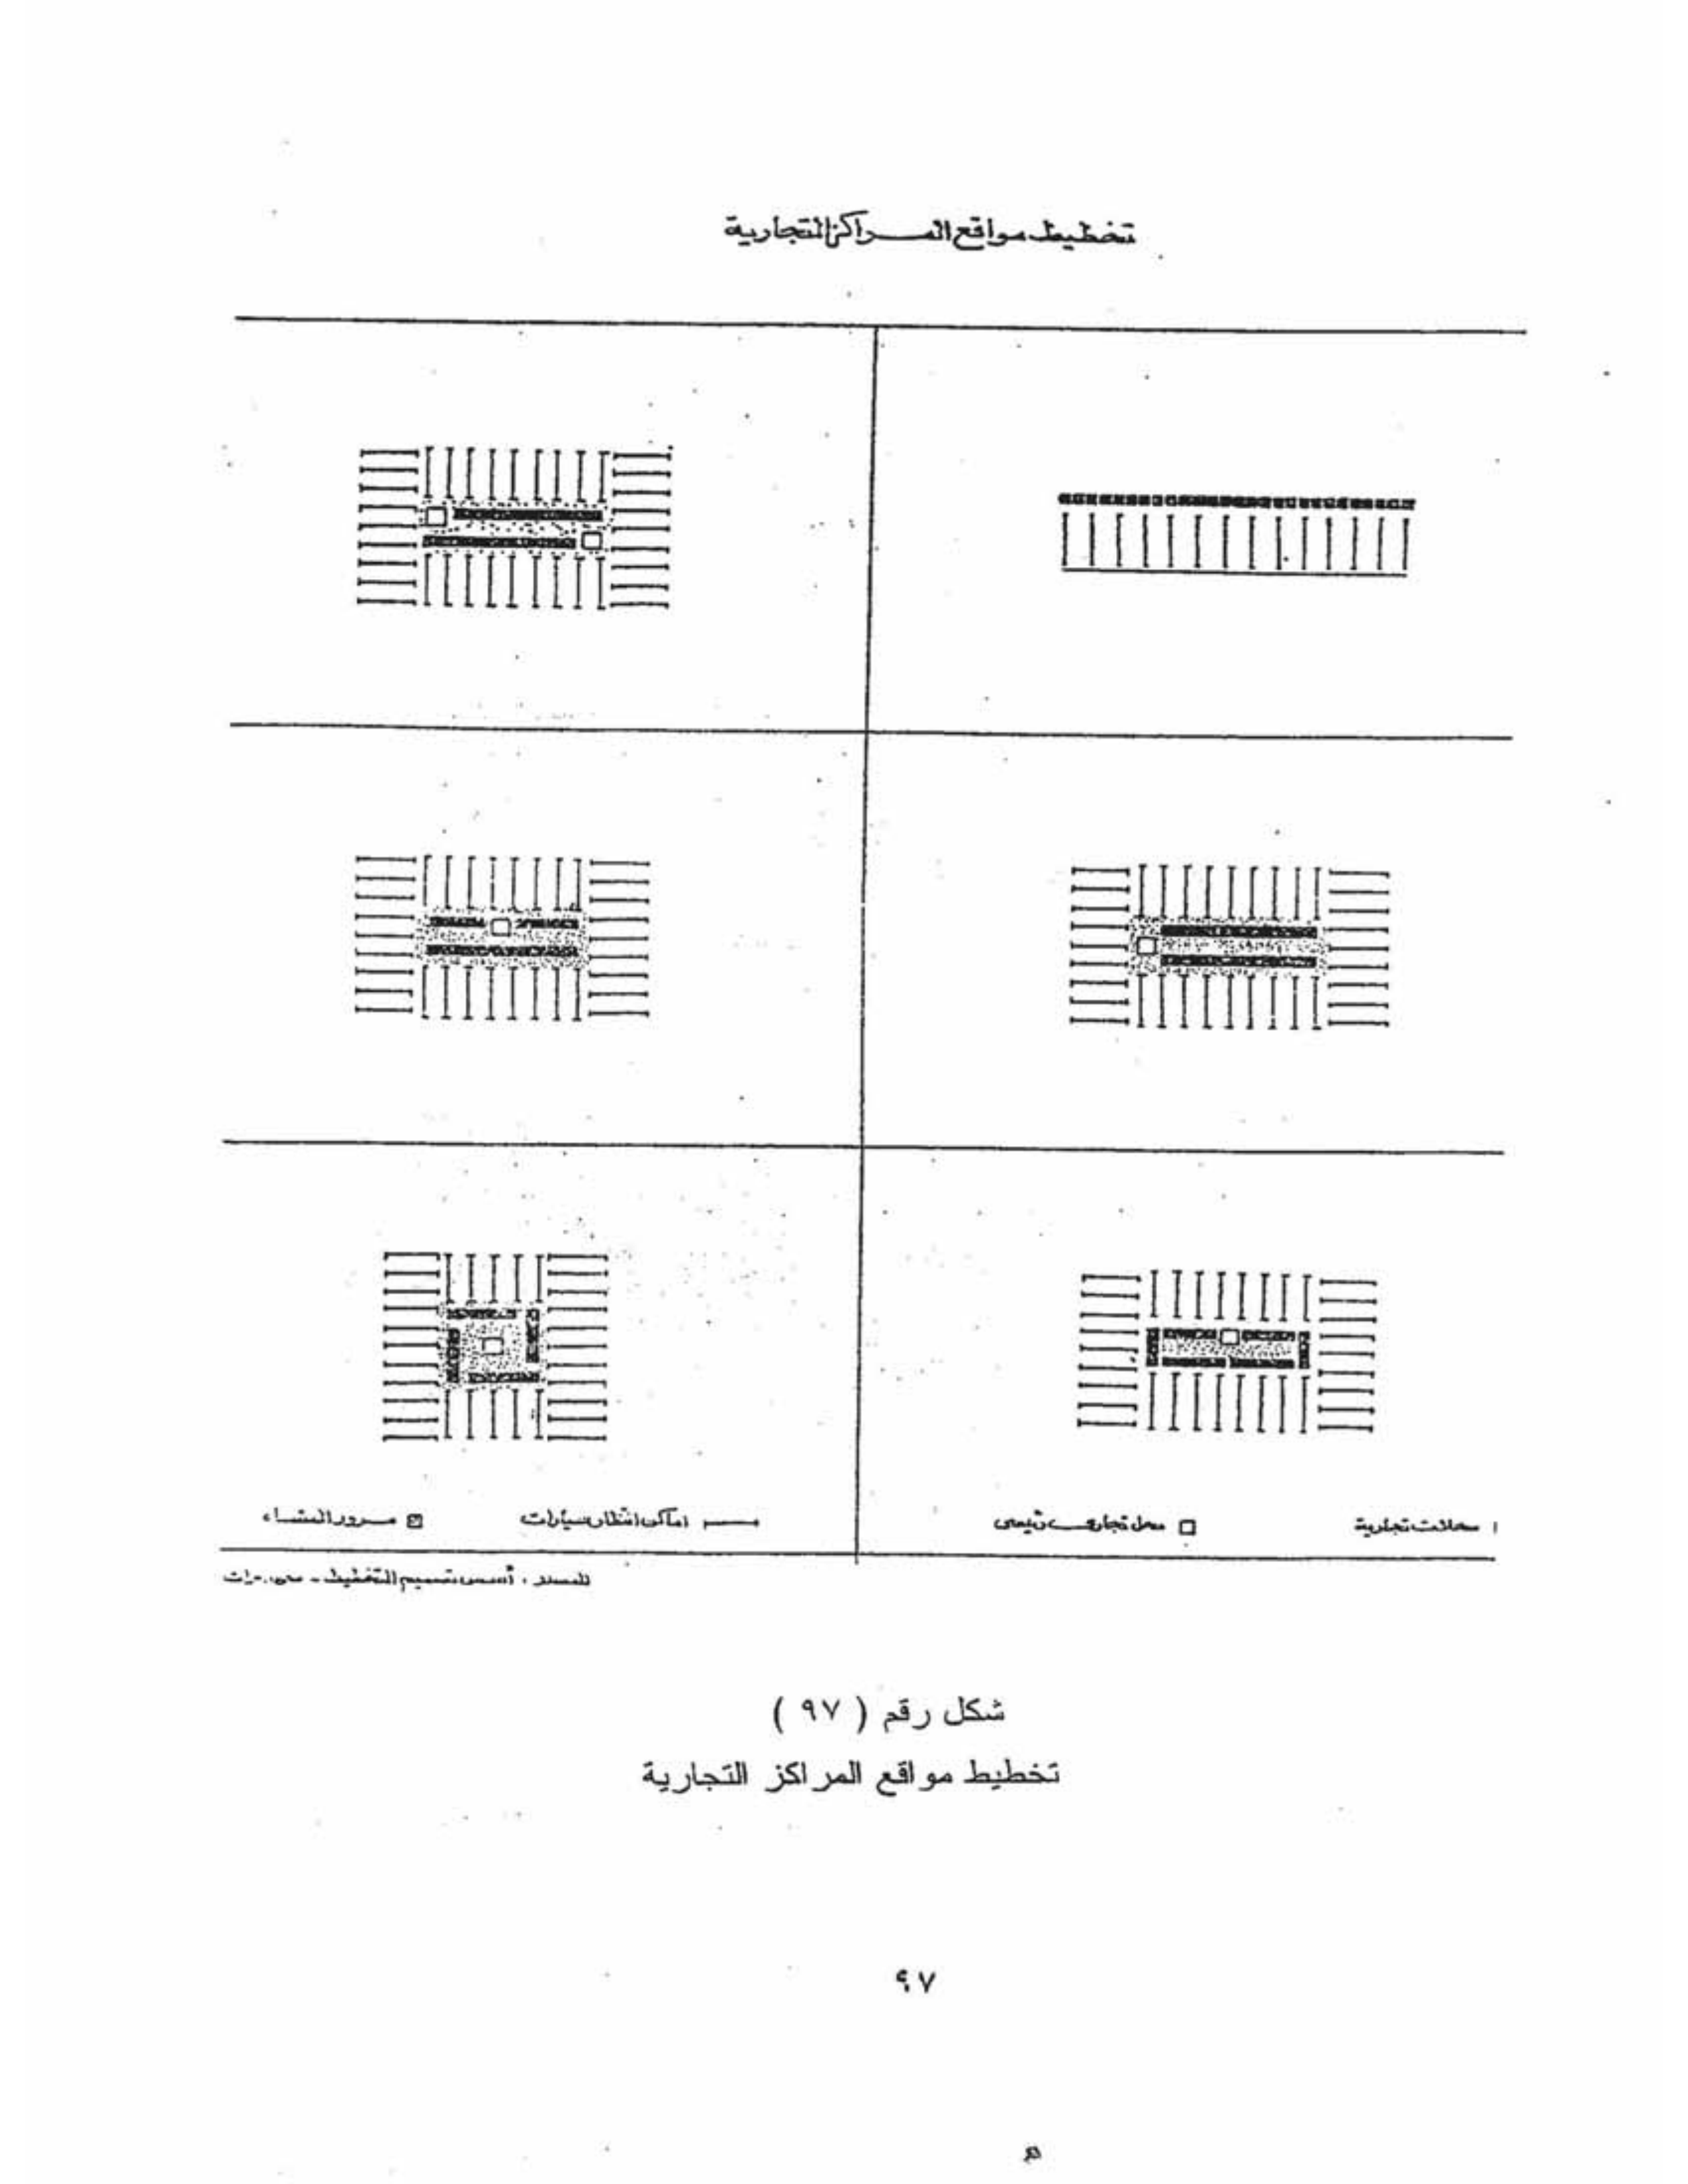 تخطيط مواقع المراكز التجارية
محلات تجارية
محل تجارى رئيسى
اماكن انتظار سيارات
مرور المشاه
المصدر : أسس تصميم التخطيط -
شكل رقم ( ٩٧ )
تخطيط مواقع المراكز التجارية
٩٧